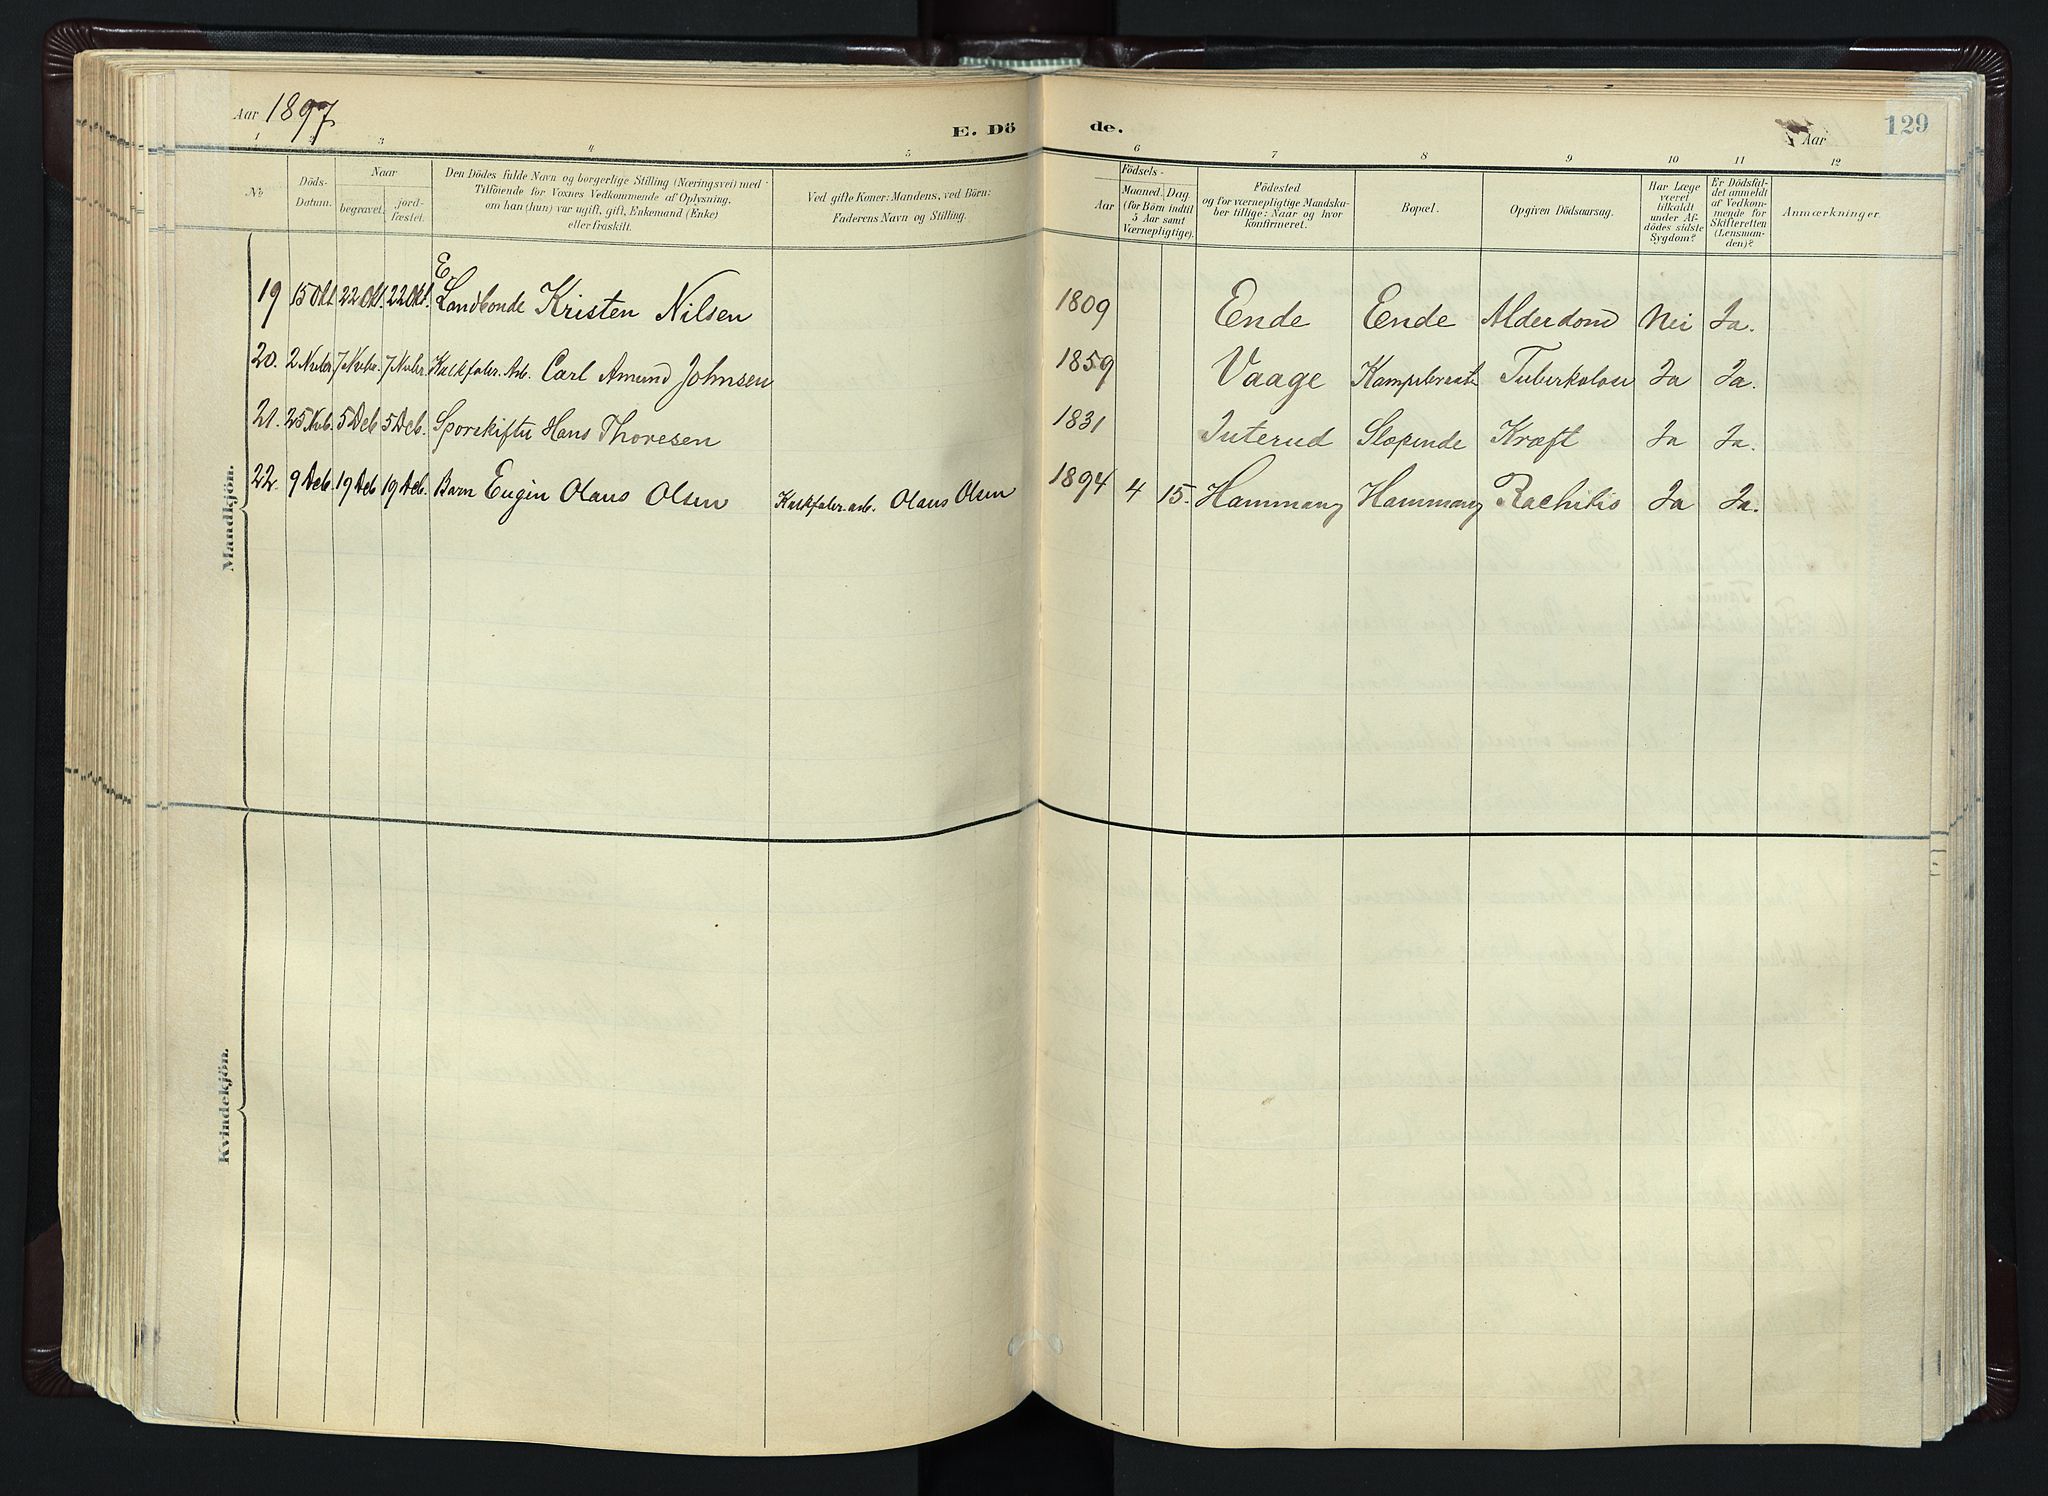 Aar 1897
E. Dö
de.
Aar
129
1 2 3 4 5 6 7 8 9 10 11 12
No
Döds-
Datum.
Naar
begravet.
jord-
fæstet.
Den Dödes fulde Navn og borgerlige Stilling (Næringsvei) med
Tilföiende for Voxnes Vedkommende af Oplysning,
om han (hun) var ugift, gift, Enkemand (Enke)
eller fraskilt.
Ved gifte Koner: Mandens, ved Börn:
Faderens Navn og Stilling.
Födsels-
Aar
Maaned.
Dag.
(for Börn indtil
5 Aar samt
Værnepligtige).
Födested
og for værnepligtige Mandska-
ber tillige: Naar og hvor
konfirmeret.
Bopæl.
Opgiven Dödsaarsag.
Har Læge
været
tilkaldt
under Af-
dödes sidste
Sygdom?
Er Dödsfal-
det anmeldt
af Vedkom-
mende for
Skifteretten
(Lensman-
den)?
Anmærkninger.
Mandkjön.
E.
19 15 Okt. 22 Okt. 22 Okt. Landbonde Kristen Nilsen 1809 Ende Ende Alderdom Nei Ja.
20. 2 Nvbr 7 Nvbr. 7 Nvbr. Kalkfabr. Arb. Carl Amund Johnsen 1859 Vaage Tuberkolose Ja Ja.
21. 25 Nvb. 5 Deb 5 Deb. Sporskifter Hans Thoresen 1831 Slepende Kræft Ja Ja.
22. 9 Deb. 19 Deb 19 Deb. Barn Eugen Olaus Olsen Kalkfabr. arb. Olaus Olsen 1894 4 15. Hammang Hammang Rachitis Ja Ja.
Kvindekjön.